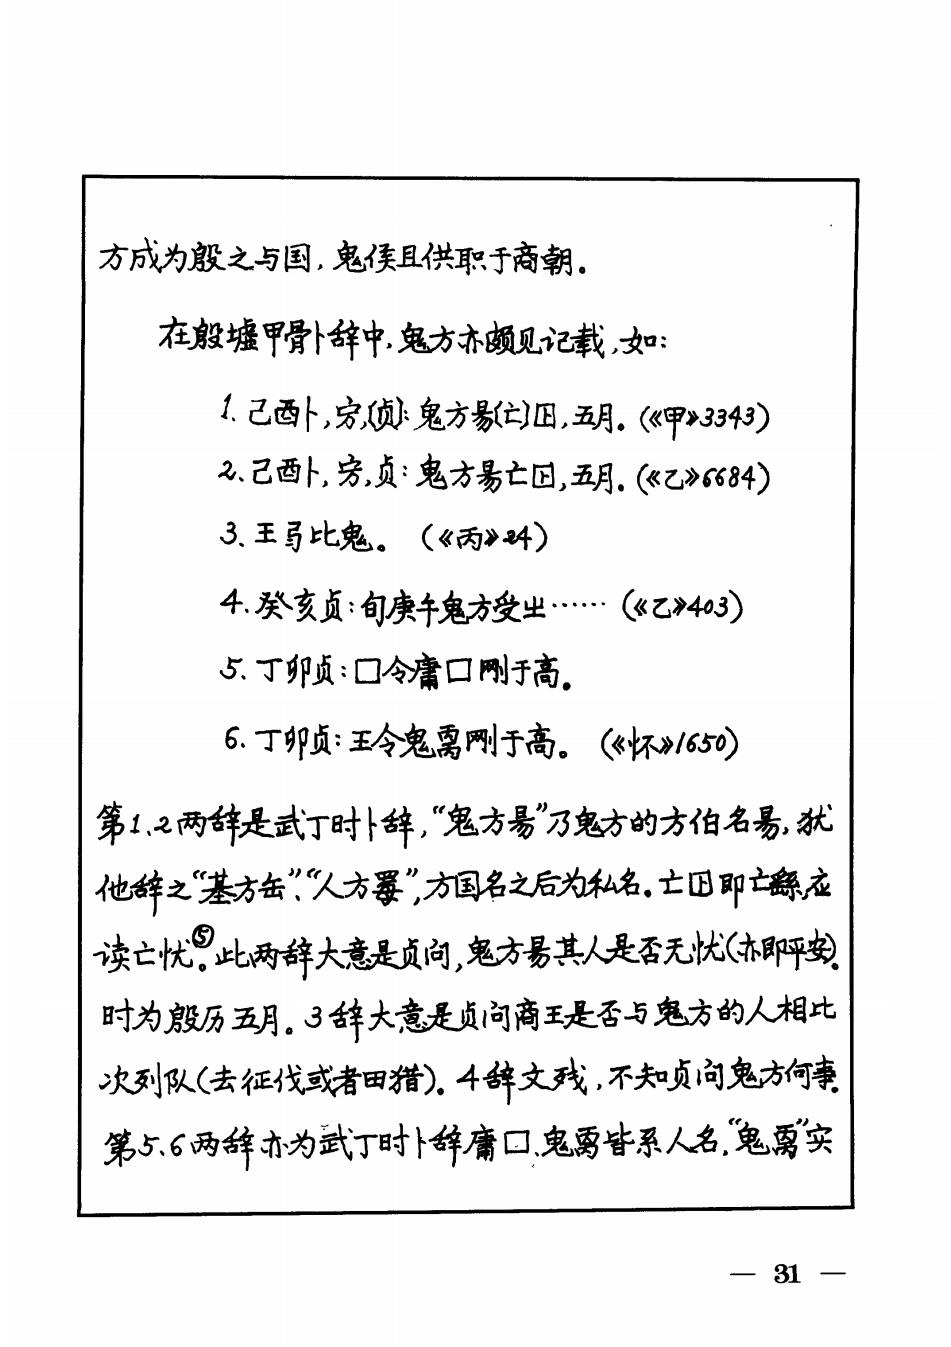 方成为殷之与国,鬼侯且供职于商朝。
在殷墟甲骨卜辞中,鬼方亦颇见记载,如:
1.己酉卜,宾,[贞]:鬼方昜[亡]囚,五月。(《甲》3343)
2、己酉卜,宾,贞:鬼方昜亡囚,五月。(《乙》6684)
3、王弓比鬼。(《丙》24)
4.癸亥贞:旬庚午鬼方受出……(《乙》403)
5.丁卯贞:□令庸□刚于高。
6.丁卯贞:王令鬼刚于高。(《怀》1650)
第1、2两辞是武丁时卜辞,“鬼方昜”乃鬼方的方伯名昜,犹
他辞之“基方缶”、“人方”,方国名之后为私名。亡即亡,应
读亡忧⑤。此两辞大意是贞问,鬼方昜其人是否无忧(亦即平安)。
时为殷历五月。3辞大意是贞问商王是否与鬼方的人相比
次列队(去征伐或者田猎)。4辞文残,不知贞问鬼方何事。
第5、6两辞亦为武丁时卜辞庸□、鬼皆系人名,“鬼”实
— 31 —